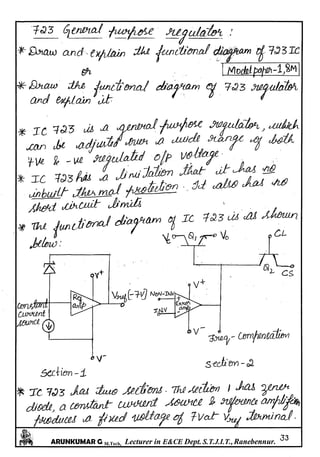 723 General purpose regulator:
* Draw and explain the functional diagram of 723 IC
or
Model paper-1, 8M
* Draw the functional diagram of 723 regulator
and explain it
* IC 723 is a general purpose regulator, which
can be adjusted over a wide range of both
+ve & -ve regulated o/p voltage.
* IC 723 has a limitation that it has no
inbuilt thermal protection. It also has no
short circuit limits
* The functional diagram of IC 723 is as shown
below:
Vc Q1 Vo CL
Q2
CS
V+ V+
Constant
Current
source
Ref
amp
Vref(-7V) Non-Inv
INV
Error
amp
V- V-
Freq- Compensation
Section-1 Section-2
* IC 723 has two sections. The section 1 has zener
diode, a constant current source & reference amplifier
produces a fixed voltage of 7V at Vref terminal.
ARUNKUMAR G M.Tech, Lecturer in E&CE Dept. S.T.J.I.T., Ranebennur. 33